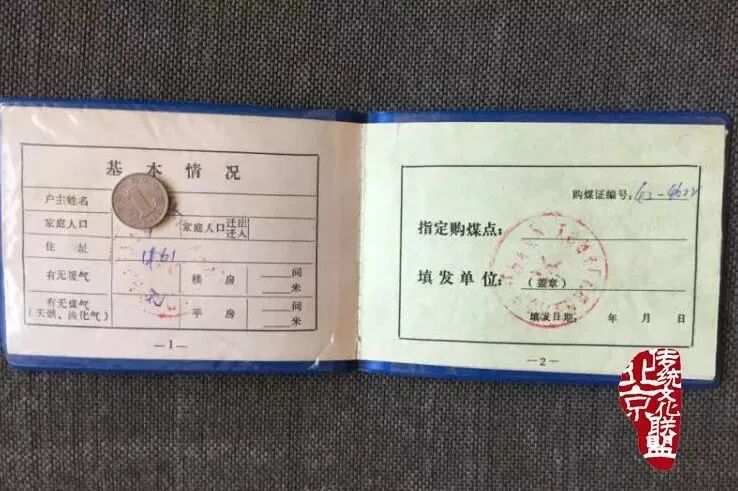 基本情况
户主姓名
家庭人口 家庭人口 迁出
迁入
住址
有无暖气 楼房 间
米
有无煤气
(天然、液化气) 平房 间
米
—1—
购煤证编号:
指定购煤点:
填发单位:
(盖章)
填发日期: 年 月 日
—2—
传统文化联盟
北京